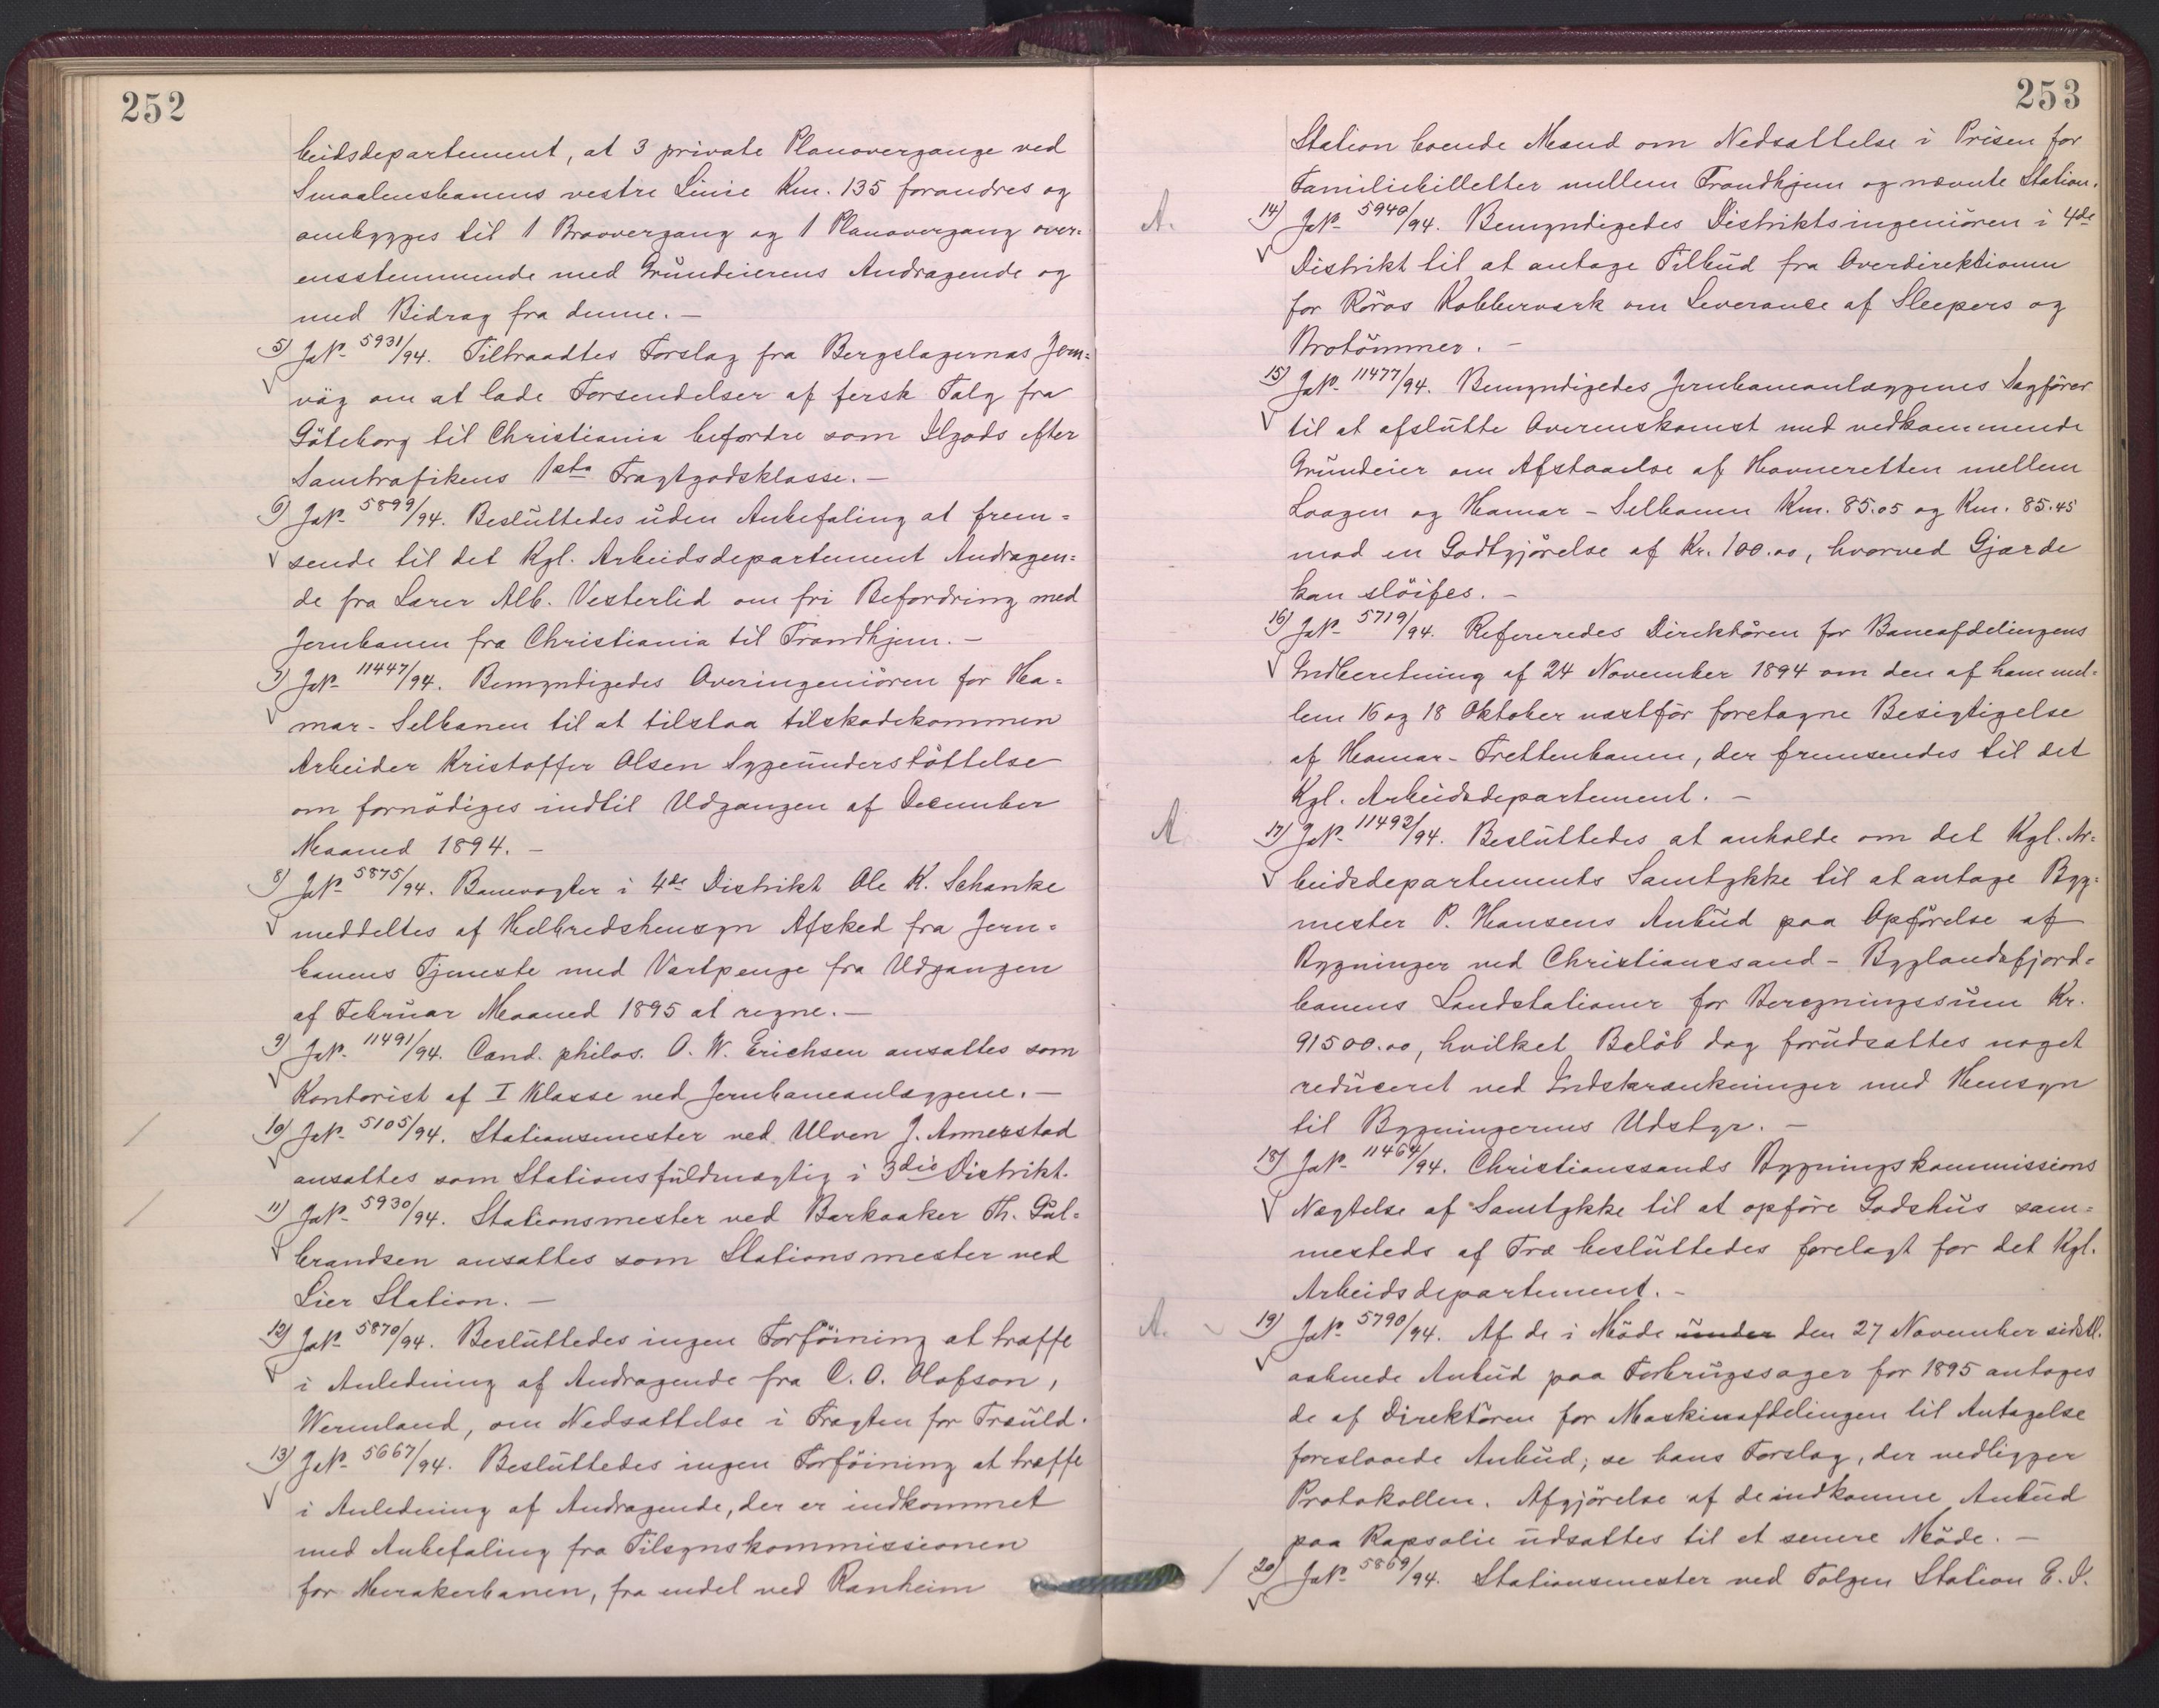 252
beidsdepartement, at 3 private Planovergange ved
Smaalensbanens vestre Linie Km. 135 forandres og
ombygges til 1 Broovergang og 1 Planovergang over=
ensstemmende med Grundeierens Andragende og
med Bidrag fra denne. –
5) JN. 5931/94. Tiltraadtes Forslag fra Bergslagernas Jern=
väg om at lade Forsendelser af fersk Talg fra
Göteborg til Christiania befordre som Ilgods efter
Samtrafikens 1ste Fragtgodsklasse. –
6) JN. 5899/94. Besluttedes uden Anbefaling at frem=
sende til det Kgl. Arbeidsdepartement Andragen=
de fra Lærer Alb. Vesterlid om fri Befordring med
Jernbanen fra Christiania til Trondhjem. –
7) JN. 11447/94. Bemyndigedes Overingeniören for Ha=
mar - Selbanen til at tilstaa tilskadekommen
Arbeider Kristoffer Olsen Sygeunderstöttelse
om fornödiges indtil Udgangen af December
Maaned 1894. –
8) JN. 5875/94. Banevogter i 4de Distrikt Ole K. Schanke
meddeltes af Helbredshensyn Afsked fra Jern=
banens Tjeneste med Vartpenge fra Udgangen
af Februar Maaned 1895 at regne. –
9) JN. 11491/94. Cand. philos. O. W. Erichsen ansattes som
Kontorist af I Klasse ved Jernbaneanlæggene. –
10) JN. 5105/94. Stationsmester ved Ulven J. Annerstad
ansattes som Stationsfuldmægtig i 3die Distrikt.
11) JN. 5930/94. Stationsmester ved Barkaaker Th. Gul=
brandsen ansattes som Stationsmester ved
Lier Station. –
12) JN. 5870/94. Besluttedes ingen Forföining at træffe
i Anledning af Andragende fra C. O. Olofson,
Wermland, om Nedsættelse i Fragten for Træuld.
13) JN. 5667/94. Besluttedes ingen Forföining at træffe
i Anledning af Andragende, der er indkommet
med Anbefaling fra Tilsynskommissionen
for Merakerbanen, fra endel ved Ranheim
253
Station boende Mænd om Nedsættelse i Prisen for
Familiebilletter mellem Trondhjem og nævnte Station.
A. 14) JN. 5940/94. Bemyndigedes Distriktsingeniören i 4de
Distrikt til at antage Tilbud fra Overdirektionen
for Röros Kobberværk om Leverance af Sleepers og
Brotömmer. –
15) JN. 11477/94. Bemyndigedes Jernbaneanlæggenes Sagförer
til at afslutte Overenskomst med vedkommende
Grundeier om Afstaaelse af Havneretten mellem
Laagen og Hamar - Selbanen Km. 85.05 og Km. 85.45
mod en Godtgjörelse af Kr. 100.00, hvorved Gjærde
kan slöifes. –
16) JN. 5719/94. Refereredes Direktören for Baneafdelingens
Indberetning af 24 November 1894 om den af ham mel=
lem 16 og 18 Oktober næstför foretagne Besigtigelse
af Hamar - Trettenbanen, der fremsendes til det
Kgl. Arbeidsdepartement. –
A. 17) JN. 11492/94. Besluttedes at anholde om det Kgl. Ar=
beidsdepartements Samtykke til at antage Byg=
mester P. Hansens Anbud paa Opförelse af
Bygninger ved Christianssand - Byglandsfjord=
banens Landstationer for Beregningssum Kr.
91500.00, hvilket Belöb dog forudsattes noget
reduceret ved Indskrænkninger med Hensyn
til Bygningernes Udstyr. –
18) JN. 11464/94. Christianssands Bygningskommissions
Nægtelse af Samtykke til at opföre Godshus sam=
mesteds af Træ besluttedes forelagt for det Kgl.
Arbeidsdepartement. –
A. 19) JN. 5790/94. Af de i Möde under den 27 November sidstl.
aabnede Anbud paa Forbrugssager for 1895 antoges
de af Direktören for Maskinafdelingen til Antagelse
foreslaaede Anbud; se hans Forslag, der vedligger
Protokollen. Afgjörelse af de indkomne Anbud
paa Rapsolie udsattes til et senere Möde. –
20) JN. 5869/94. Stationsmester ved Tolgen Station E. I.